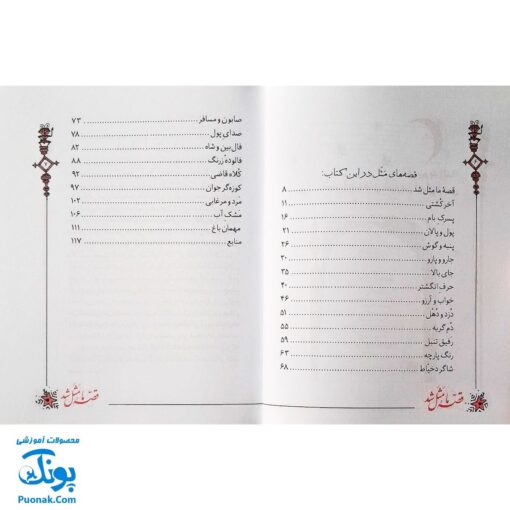 قصه‌های مَثَل در این کتاب:
قصهٔ ما مثل شد ........ ۸
آخر کُشتی ........ ۱۱
پسرک بام ........ ۱۶
پول و پالان ........ ۲۱
پنبه و گوش ........ ۲۶
جارو و پارو ........ ۳۰
جای بالا ........ ۳۵
حرف انگشتر ........ ۴۰
خواب و آرزو ........ ۴۶
دُزد و دُهُل ........ ۵۱
دُم گربه ........ ۵۵
رفیق تنبل ........ ۵۹
رنگ پارچه ........ ۶۳
شاگرد خیّاط ........ ۶۸
قصّهٔ ما مَثَل شد
صابون و مسافر ........ ۷۳
صدای پول ........ ۷۸
فال‌بین و شاه ........ ۸۲
فالودهٔ زرنگ ........ ۸۸
کُلاه قاضی ........ ۹۲
کوزه‌گر جوان ........ ۹۷
مَرد و مرغابی ........ ۱۰۲
مَشک آب ........ ۱۰۶
مهمان باغ ........ ۱۱۱
منابع ........ ۱۱۷
قصّهٔ ما مَثَل شد
محصولات آموزشی
پونک
Puonak.Com